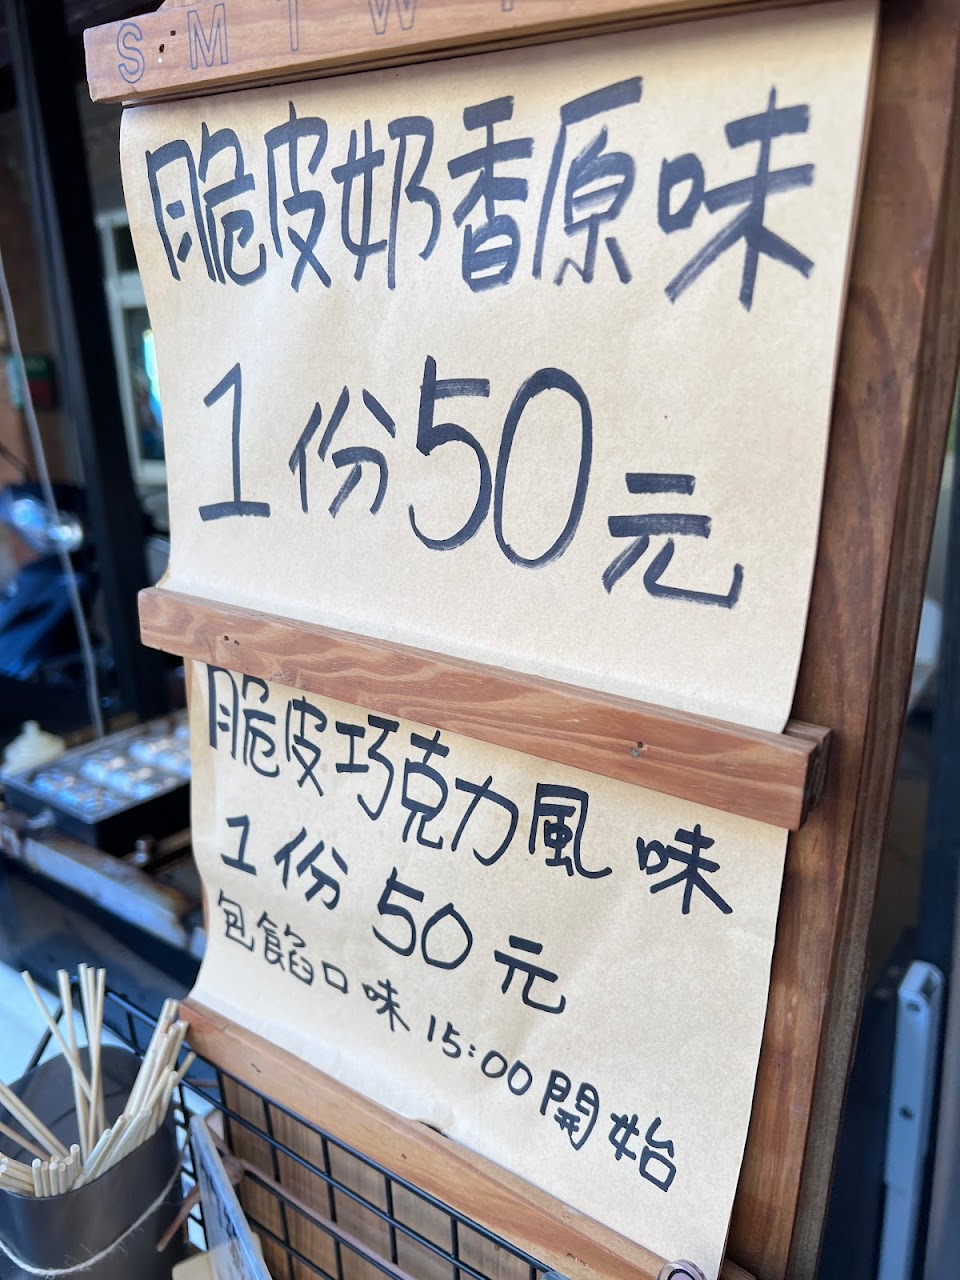 S M T W
脆皮奶香原味
1份50元
脆皮巧克力風味
1份50元
包餡口味 15:00開始